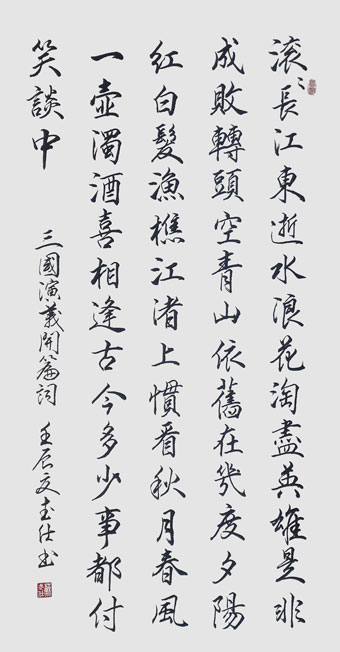 滚〻長江東逝水浪花淘盡英雄是非
成敗轉頭空青山依舊在幾度夕陽
紅白髮漁樵江渚上慣看秋月春風
一壺濁酒喜相逢古今多少事都付
笑談中
三國演義開篇詞 壬辰